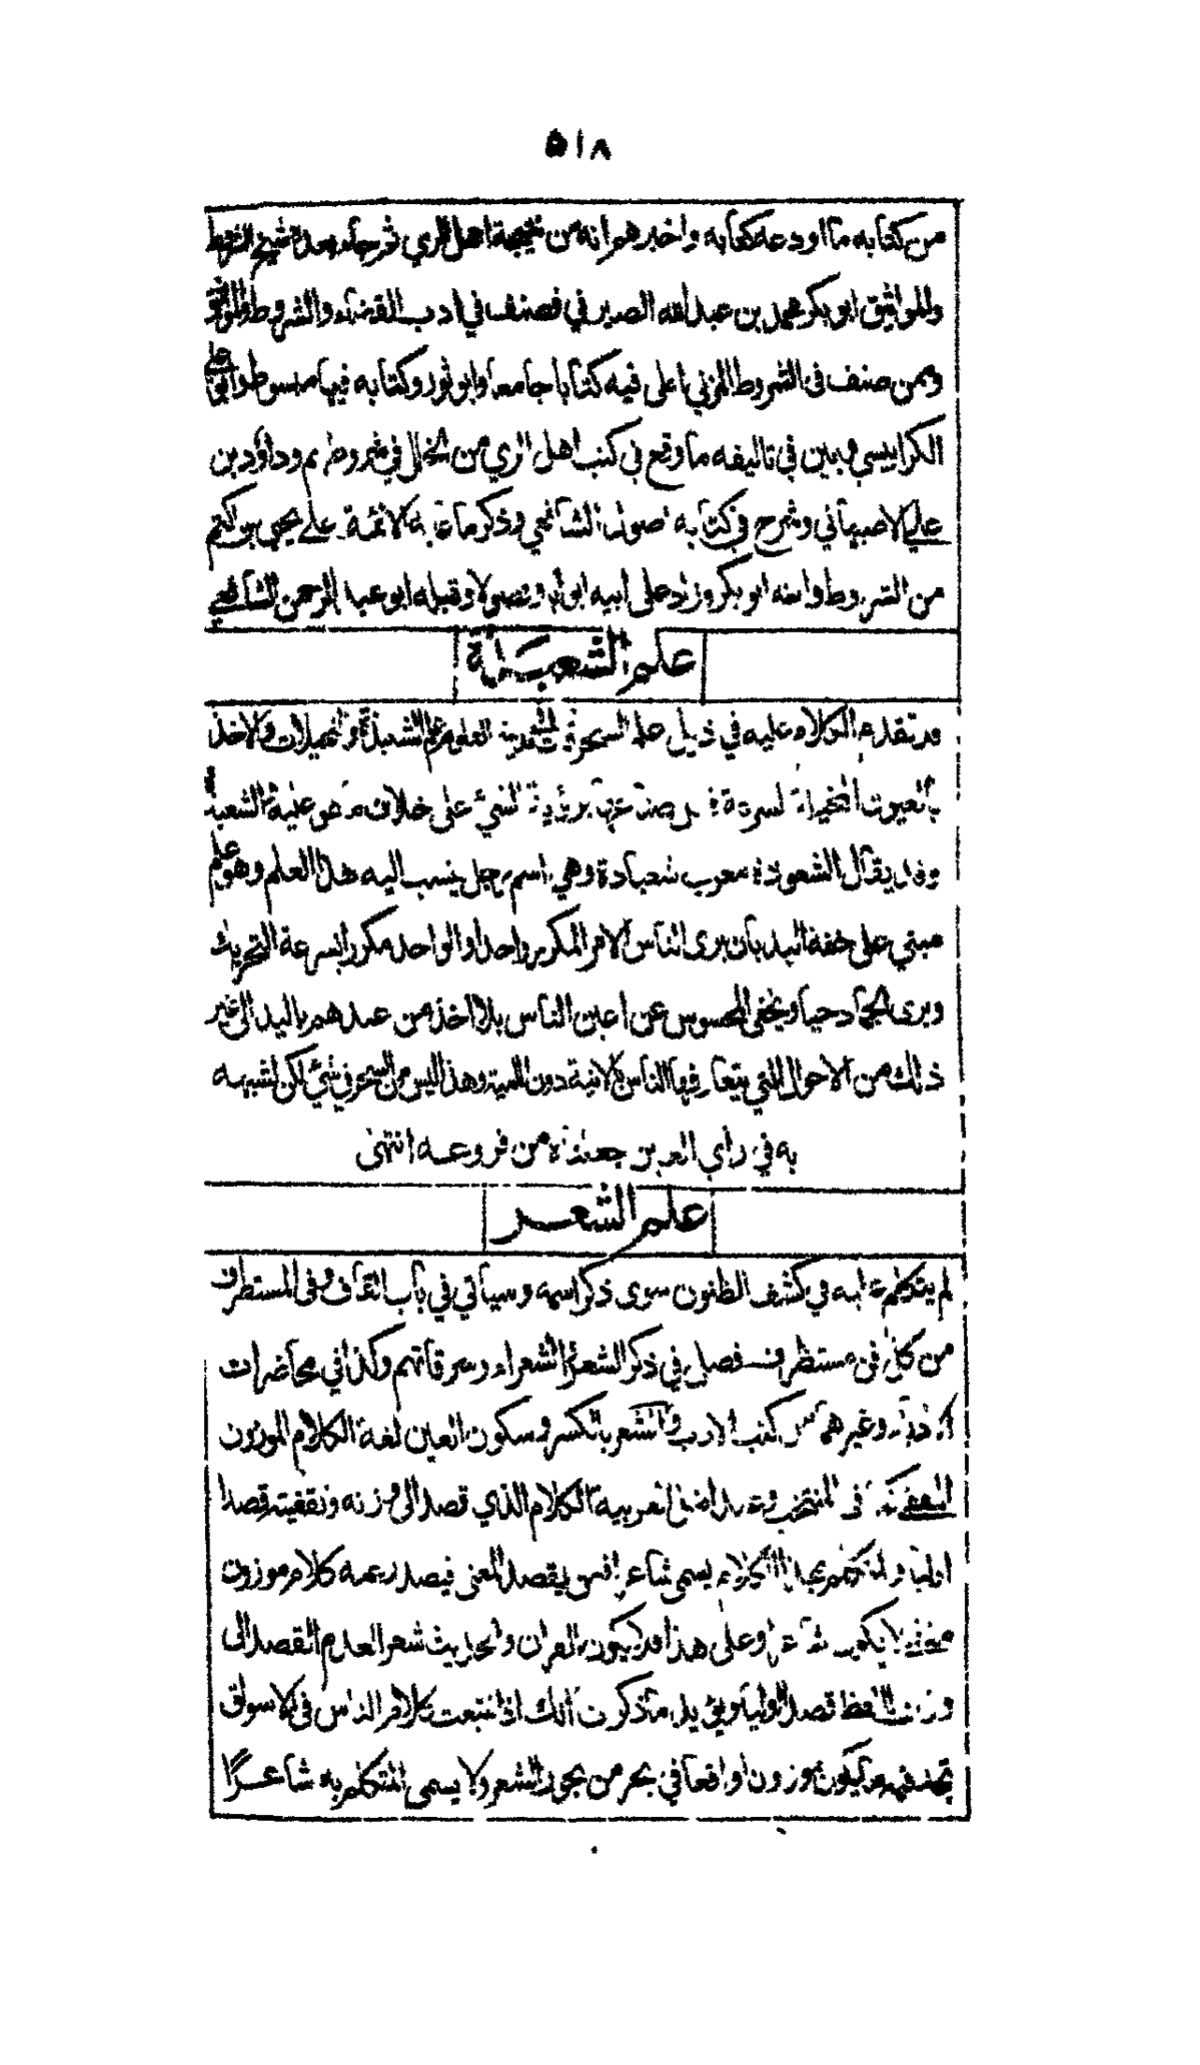 ٥١٨
من كتابه ما اودعه كتابه واخبرهم انه من نتيجة اهل الري ثم جاء بعده شيخ الشروط
والمواثيق ابو بكر محمد بن عبد الله الصيرفي فصنف في ادب القضاء والشروط والمواثيق
وممن صنف في الشروط المزني املى فيه كتابا جامعا وابو ثور وكتابه فيها مبسوط وابو علي
الكرابيسي وبين في تاليفه ما وقع في كتب اهل الري من الخلل في شروطهم وداود بن
علي الاصبهاني وشرح في كتابه اصول الشافعي وذكر ما عابه الائمة على يحيى بن اكثم
من الشروط وابنه ابو بكر وزاد على ابيه ابوابا وفصولا وقبله ابو عبد الرحمن الشافعي
علم الشعبذة
قد تقدم الكلام عليه في ذيل علم السحر في مدينة العلوم علم الشعبذة والتخيلات والاخذ
بالعيون المخيلة لسرعة برؤية الشيء على خلاف ما هو عليه الشعبذة
وقد يقال الشعوذة معرب شعباده وهي اسم رجل ينسب اليه هذا العلم وهو علم
مبني على خفة اليد بان يرى الناس الامر المكرر واحدا والواحد مكررا بسرعة التحريك
ويرى الجماد حيا ويخفى المحسوس عن اعين الناس بلا اخذ من عندهم باليد الى غير
ذلك من الاحوال التي يتعارفها الناس الانية دون اللمية وهذا ليس من السحر في شيء لكن لشبهه
به في راي العين جعلناه من فروعه انتهى
علم الشعر
لم يتكلم عليه في كشف الظنون سوى ذكر اسمه وسياتي في باب القاف وفي المستطرف
من كل فن مستظرف فصل في ذكر الشعر والشعراء وسرقاتهم وكذا في محاضرات
الادباء وغيرهما من كتب الادب والشعر بالكسر وسكون العين لغة الكلام الموزون
المقفى كما في المنتخب وعند اهل العربية الكلام الذي قصد الى وزنه وتقفيته قصدا
اوليا والمتكلم بهذا الكلام يسمى شاعرا فمن يقصد المعنى فيصدر عنه كلام موزون
مقفى لا يكون شاعرا وعلى هذا فلا يكون القران والحديث شعر العدم القصد الى
وزن اللفظ قصدا اوليا ويؤيد ما ذكرت انك اذا تتبعت كلام الناس في الاسواق
تجد فيه ما يكون موزونا واقعا في بحر من بحور الشعر ولا يسمى المتكلم به شاعرًا